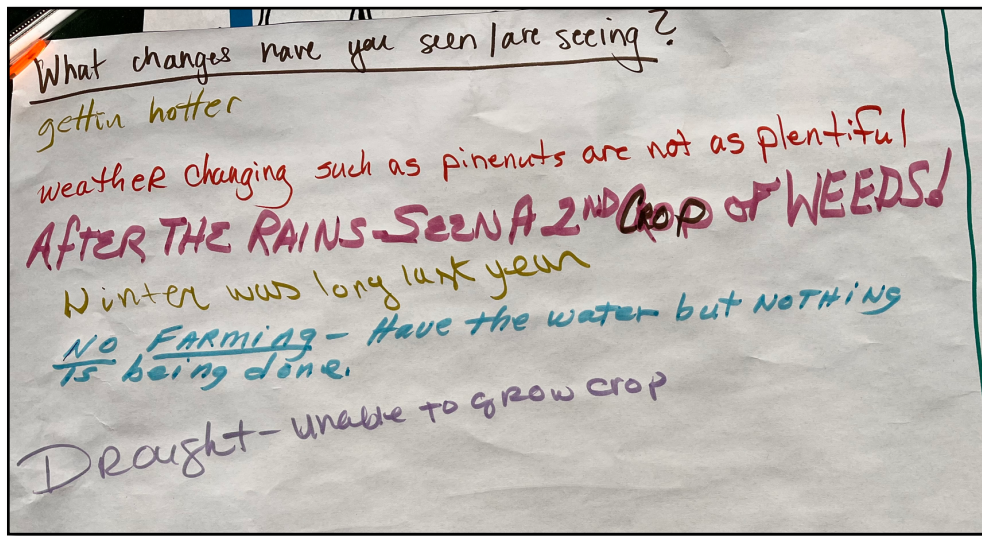 What changes have you seen/are seeing?
gettin hotter
weatheR changing such as pinenuts are not as plentiful
AfTER THE RAINS-SEEN A 2ND CROP of WEEDS!
Winter was long last year
NO FARMiNg - Have the water but NOTHiNg
Is being done.
DRought - unable to gRow crop